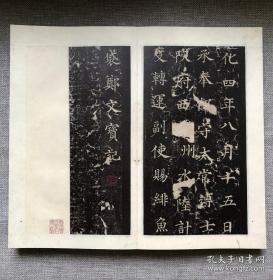 化四年八月十五日
承奉郎守太常博士
陝府西 州水陸計
度轉運副使賜緋魚
袋鄭文寶記
孔夫子旧书网